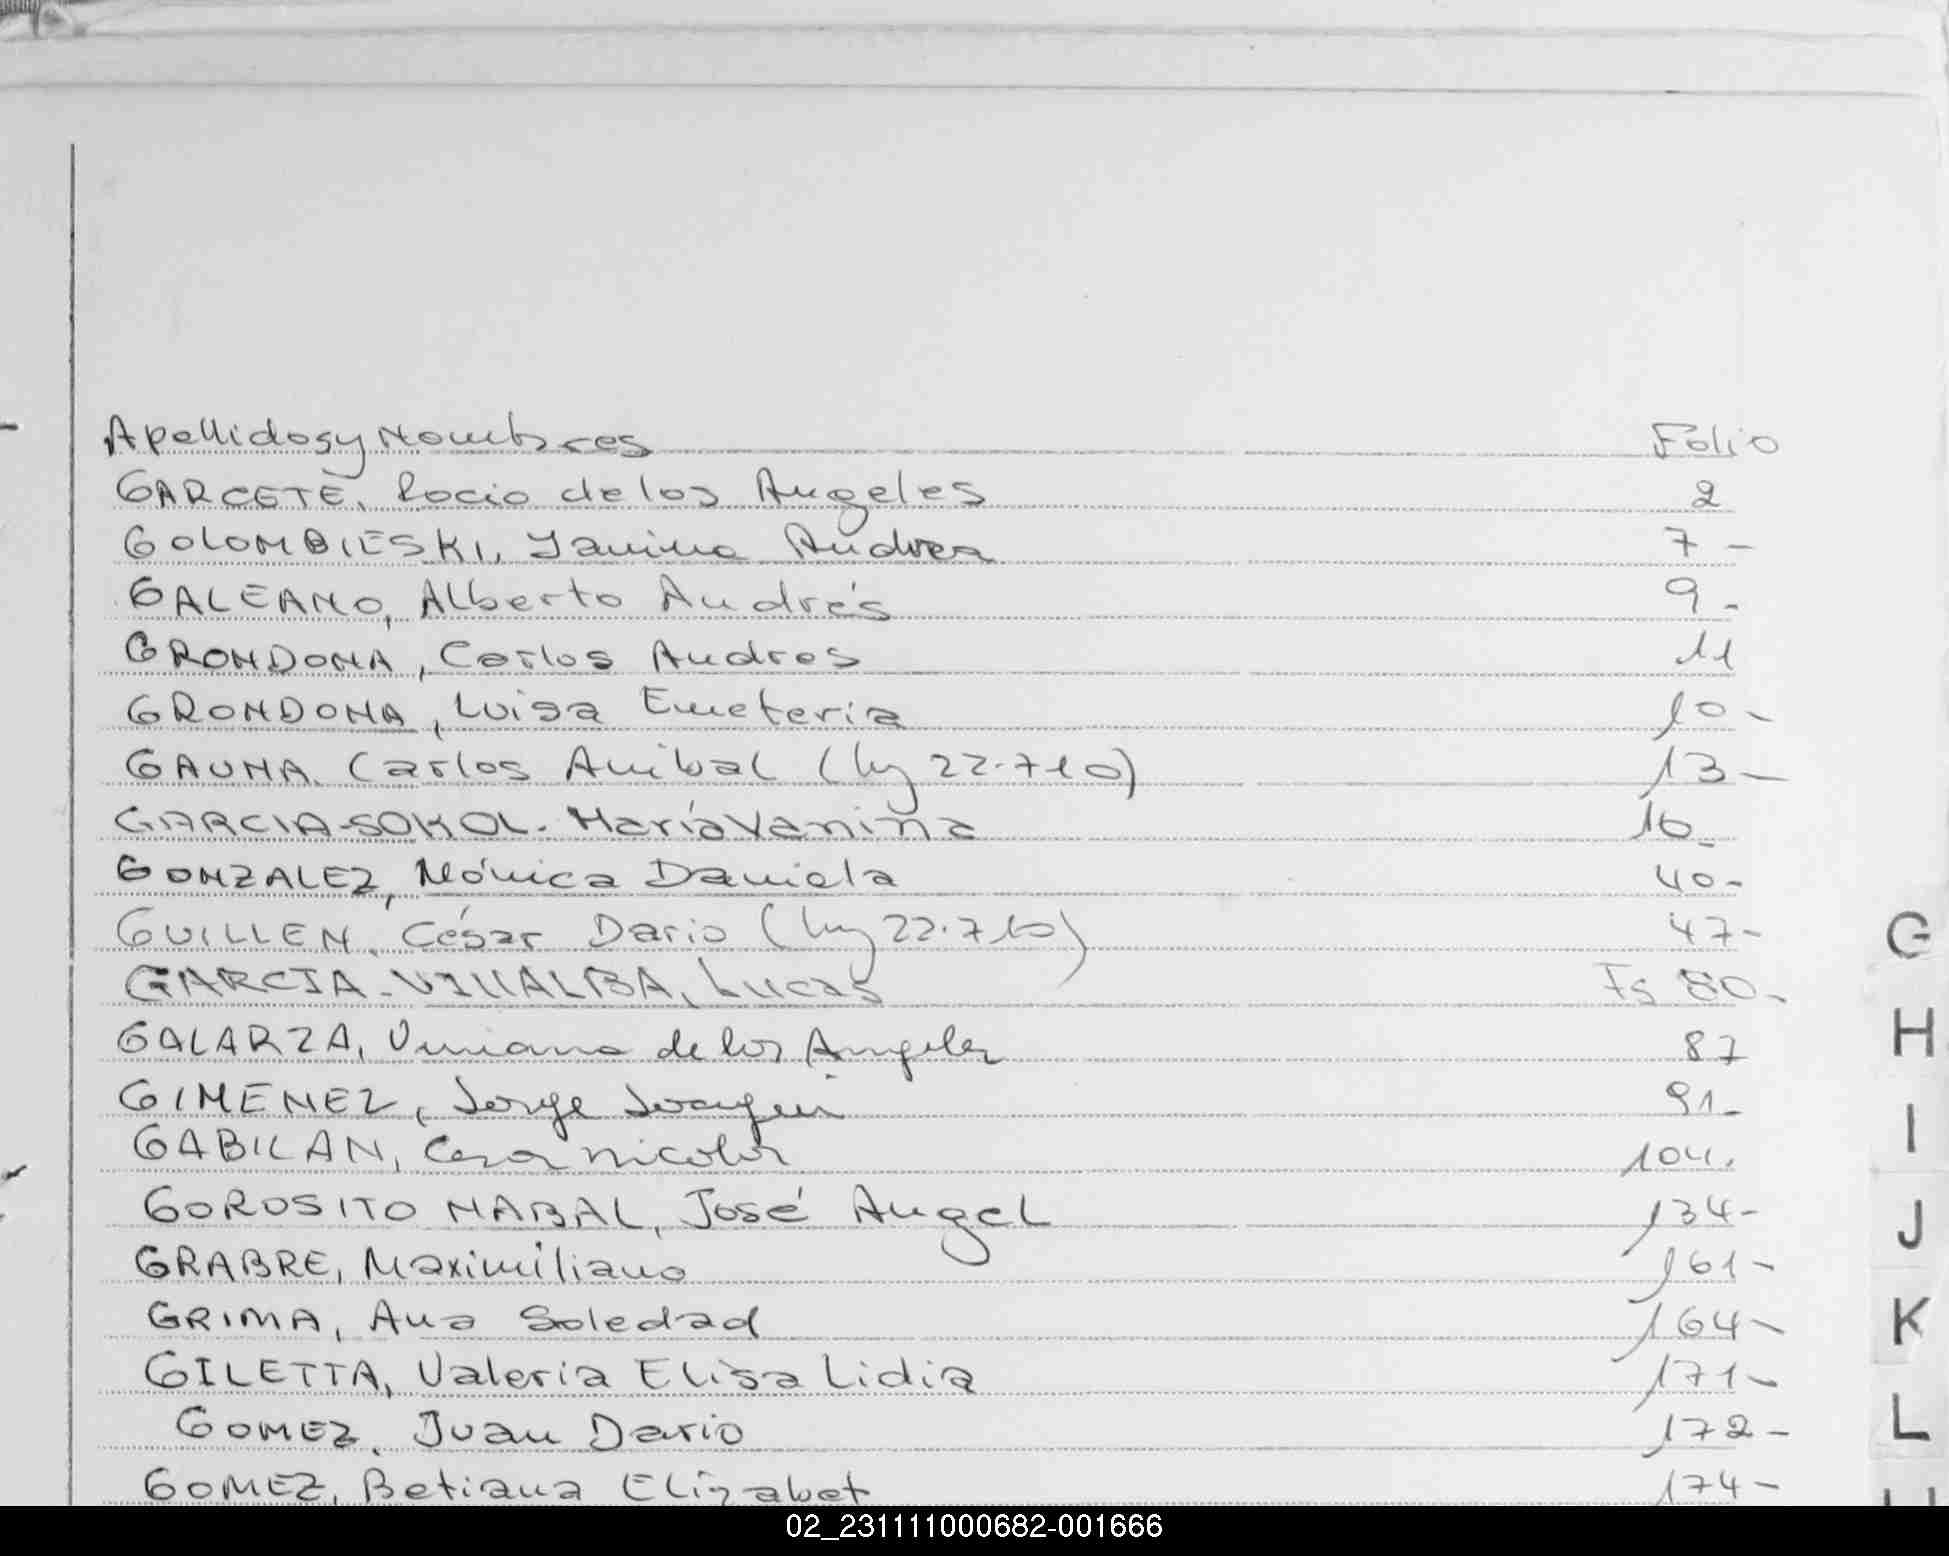 Apellidos y Nombres Folio
GARCETE, Rocio de los Angeles 2
GOLOMBIESKI, Yanina Andrea 7 -
GALEANO, Alberto Andrés 9 -
GRONDONA, Carlos Andres 11
GRONDONA, Luisa Emeteria 10 -
GAUNA. Carlos Anibal (ley 22.710) 13 -
GARCIA-SOKOL. María Vanina 16 -
GONZALEZ, Mónica Daniela 40 -
GUILLEN. César Dario (ley 22.710) 47 -
GARCIA-VILLALBA, Lucas Fs 80 -
GALARZA, de los Angeles 87
GIMENEZ, Jorge Joaquin 91 -
GABILAN, Cesar Nicolas 104.
GOROSITO NABAL, José Angel 134 -
GRABRE, Maximiliano 161 -
GRIMA, Ana Soledad 164 -
GILETTA, Valeria Elisa Lidia 171 -
GOMEZ, Juan Dario 172 -
GOMEZ, Betiana Elizabet 174 -
G
H
I
J
K
L
02_231111000682-001666